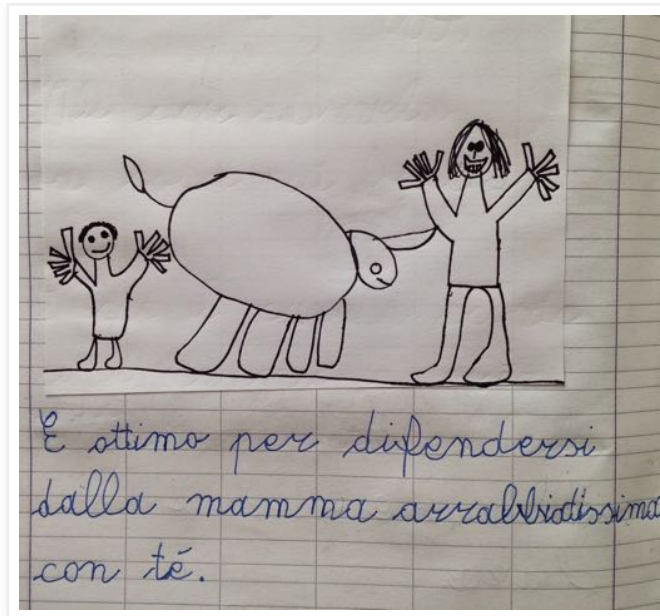 E ottimo per difendersi
dalla mamma arrabbiatissima
con té.